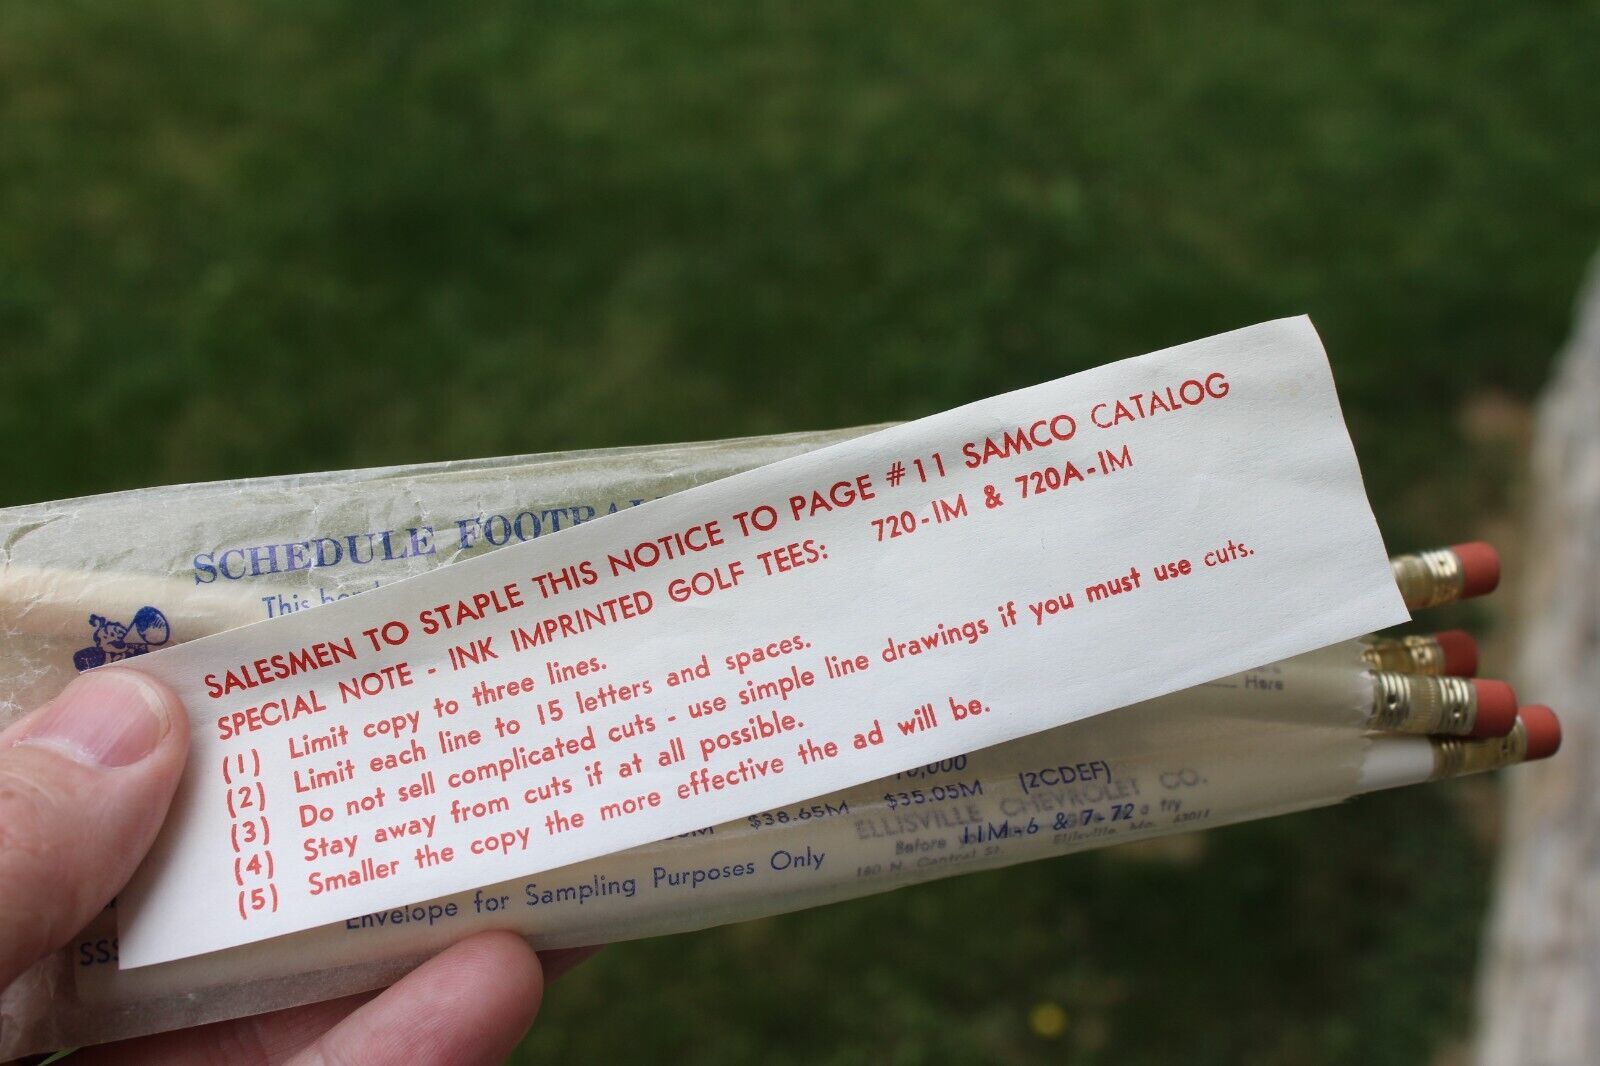 SALESMEN TO STAPLE THIS NOTICE TO PAGE #11 SAMCO CATALOG
SPECIAL NOTE - INK IMPRINTED GOLF TEES: 720-IM & 720A-IM
(1) Limit copy to three lines.
(2) Limit each line to 15 letters and spaces.
(3) Do not sell complicated cuts - use simple line drawings if you must use cuts.
(4) Stay away from cuts if at all possible.
(5) Smaller the copy the more effective the ad will be.
SCHEDULE
This
Here
$38.65M $35.05M (2CDEF)
ELLISVILLE CHEVROLET CO.
Before try
11M-6 & 7-72
180 N. Central St. Ellisville, Mo. 63011
Envelope for Sampling Purposes Only